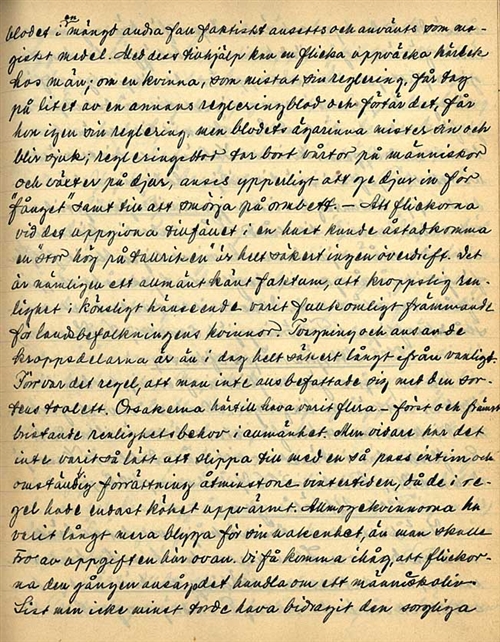 blodet i en mängd andra fall faktiskt ansetts och använts som ma-
giskt medel. Med dess tillhjälp kan en flicka uppväcka kärlek
hos män; om en kvinna, som mistat sin reglering, får tag
på litet av en annans regleringsblod och förtär det, får
hon igen sin reglering, men blodets ägarinna mister sin och
blir sjuk; regleringsblod tar bort vårtor på människor
och växter på djur, anses ypperligt att ge djur in för
"fånget" samt till att smörja på ormbett. — Att flickorna
vid det uppgivna tillfället i en hast kunde åstadkomma
en "stor hög på tallriken" är helt säkert ingen överdrift. Det
är nämligen ett allmänt känt faktum, att kroppslig ren-
lighet i könsligt hänseende varit fullkomligt främmande
för landsbefolkningens kvinnor. Tvagning och ansande
kroppsdelarna är än i dag helt säkert långt ifrån vanligt.
Förr var det regel, att man inte alls befattade sig med den sor-
tens toalett. Orsakerna härtill hava varit flera – först och främst
bristande renlighetsbehov i allmänhet. Men vidare har det
inte varit så lätt att slippa till med en så pass intim och
omständlig förrättning åtminstone vintertiden, då de i re-
gel hade endast köket uppvärmt. Allmogekvinnorna ha
varit långt mera blyga för sin nakenhet, än man skulle
tro av uppgiften här ovan. Vi få komma ihåg, att flickor-
na den gången ansåg det handla om ett människoliv.
Sist men icke minst torde hava bidragit den sorgliga